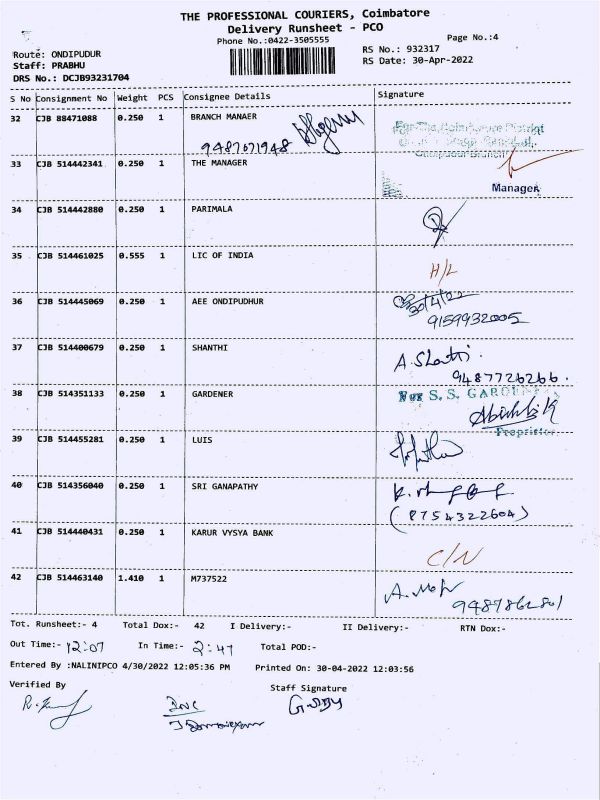 THE PROFESSIONAL COURIERS, Coimbatore
Delivery Runsheet - PCO
Phone No.:0422-3505555
Page No.:4
Route: ONDIPUDUR
RS No.: 932317
Staff: PRABHU
RS Date: 30-Apr-2022
DRS No.: DCJB93231704
S No Consignment No Weight PCS Consignee Details Signature
32 CJB 88471088 0.250 1 BRANCH MANAER
9487071948
33 CJB 514442341 0.250 1 THE MANAGER
Manager
34 CJB 514442880 0.250 1 PARIMALA
35 CJB 514461025 0.555 1 LIC OF INDIA H/L
36 CJB 514445069 0.250 1 AEE ONDIPUDHUR 30/4/22
9159932005
37 CJB 514400679 0.250 1 SHANTHI A. Shanthi.
9487726266.
38 CJB 514351133 0.250 1 GARDENER For S. S. GARDENER
Proprietor
39 CJB 514455281 0.250 1 LUIS
40 CJB 514356040 0.250 1 SRI GANAPATHY
(8754322604)
41 CJB 514440431 0.250 1 KARUR VYSYA BANK C/N
42 CJB 514463140 1.410 1 M737522
9487862801
Tot. Runsheet:- 4 Total Dox:- 42 I Delivery:- II Delivery:- RTN Dox:-
Out Time:- 12:07 In Time:- 2:47 Total POD:-
Entered By :NALINIPCO 4/30/2022 12:05:36 PM Printed On: 30-04-2022 12:03:56
Verified By Staff Signature